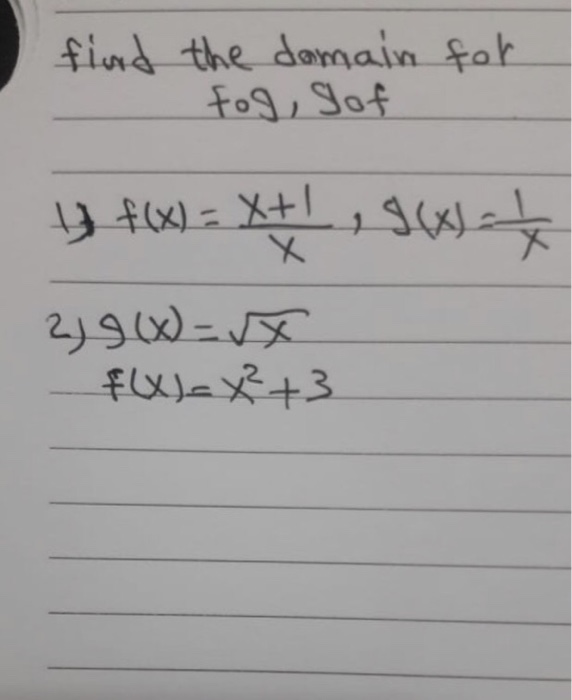 find the domain for
fog, gof
1) f(x) = x+1/x , g(x) = 1/x
2) g(x) = √x
f(x) = x² + 3